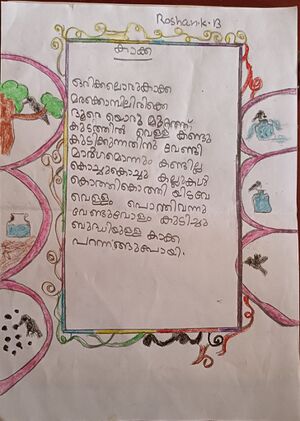 Roshan.K.B
കാക്ക
ഒരിക്കലൊരുകാക്ക
മരക്കൊമ്പിലിരിക്കെ
ദൂരെ യൊരു മുറ്റത്ത്
കുടത്തിൻ വെള്ളം കണ്ടു
കുടിക്കുന്നതിനു വേണ്ടി
മാർഗമൊന്നും കണ്ടില്ല
കൊച്ചുകൊച്ചു കല്ലുകൾ
കൊത്തികൊത്തി യിടവേ
വെള്ളം പൊന്തിവന്നു
വേണ്ടുവോളം കുടിച്ചു
ബുദ്ധിയുള്ള കാക്ക
പറന്നങ്ങുപോയി.